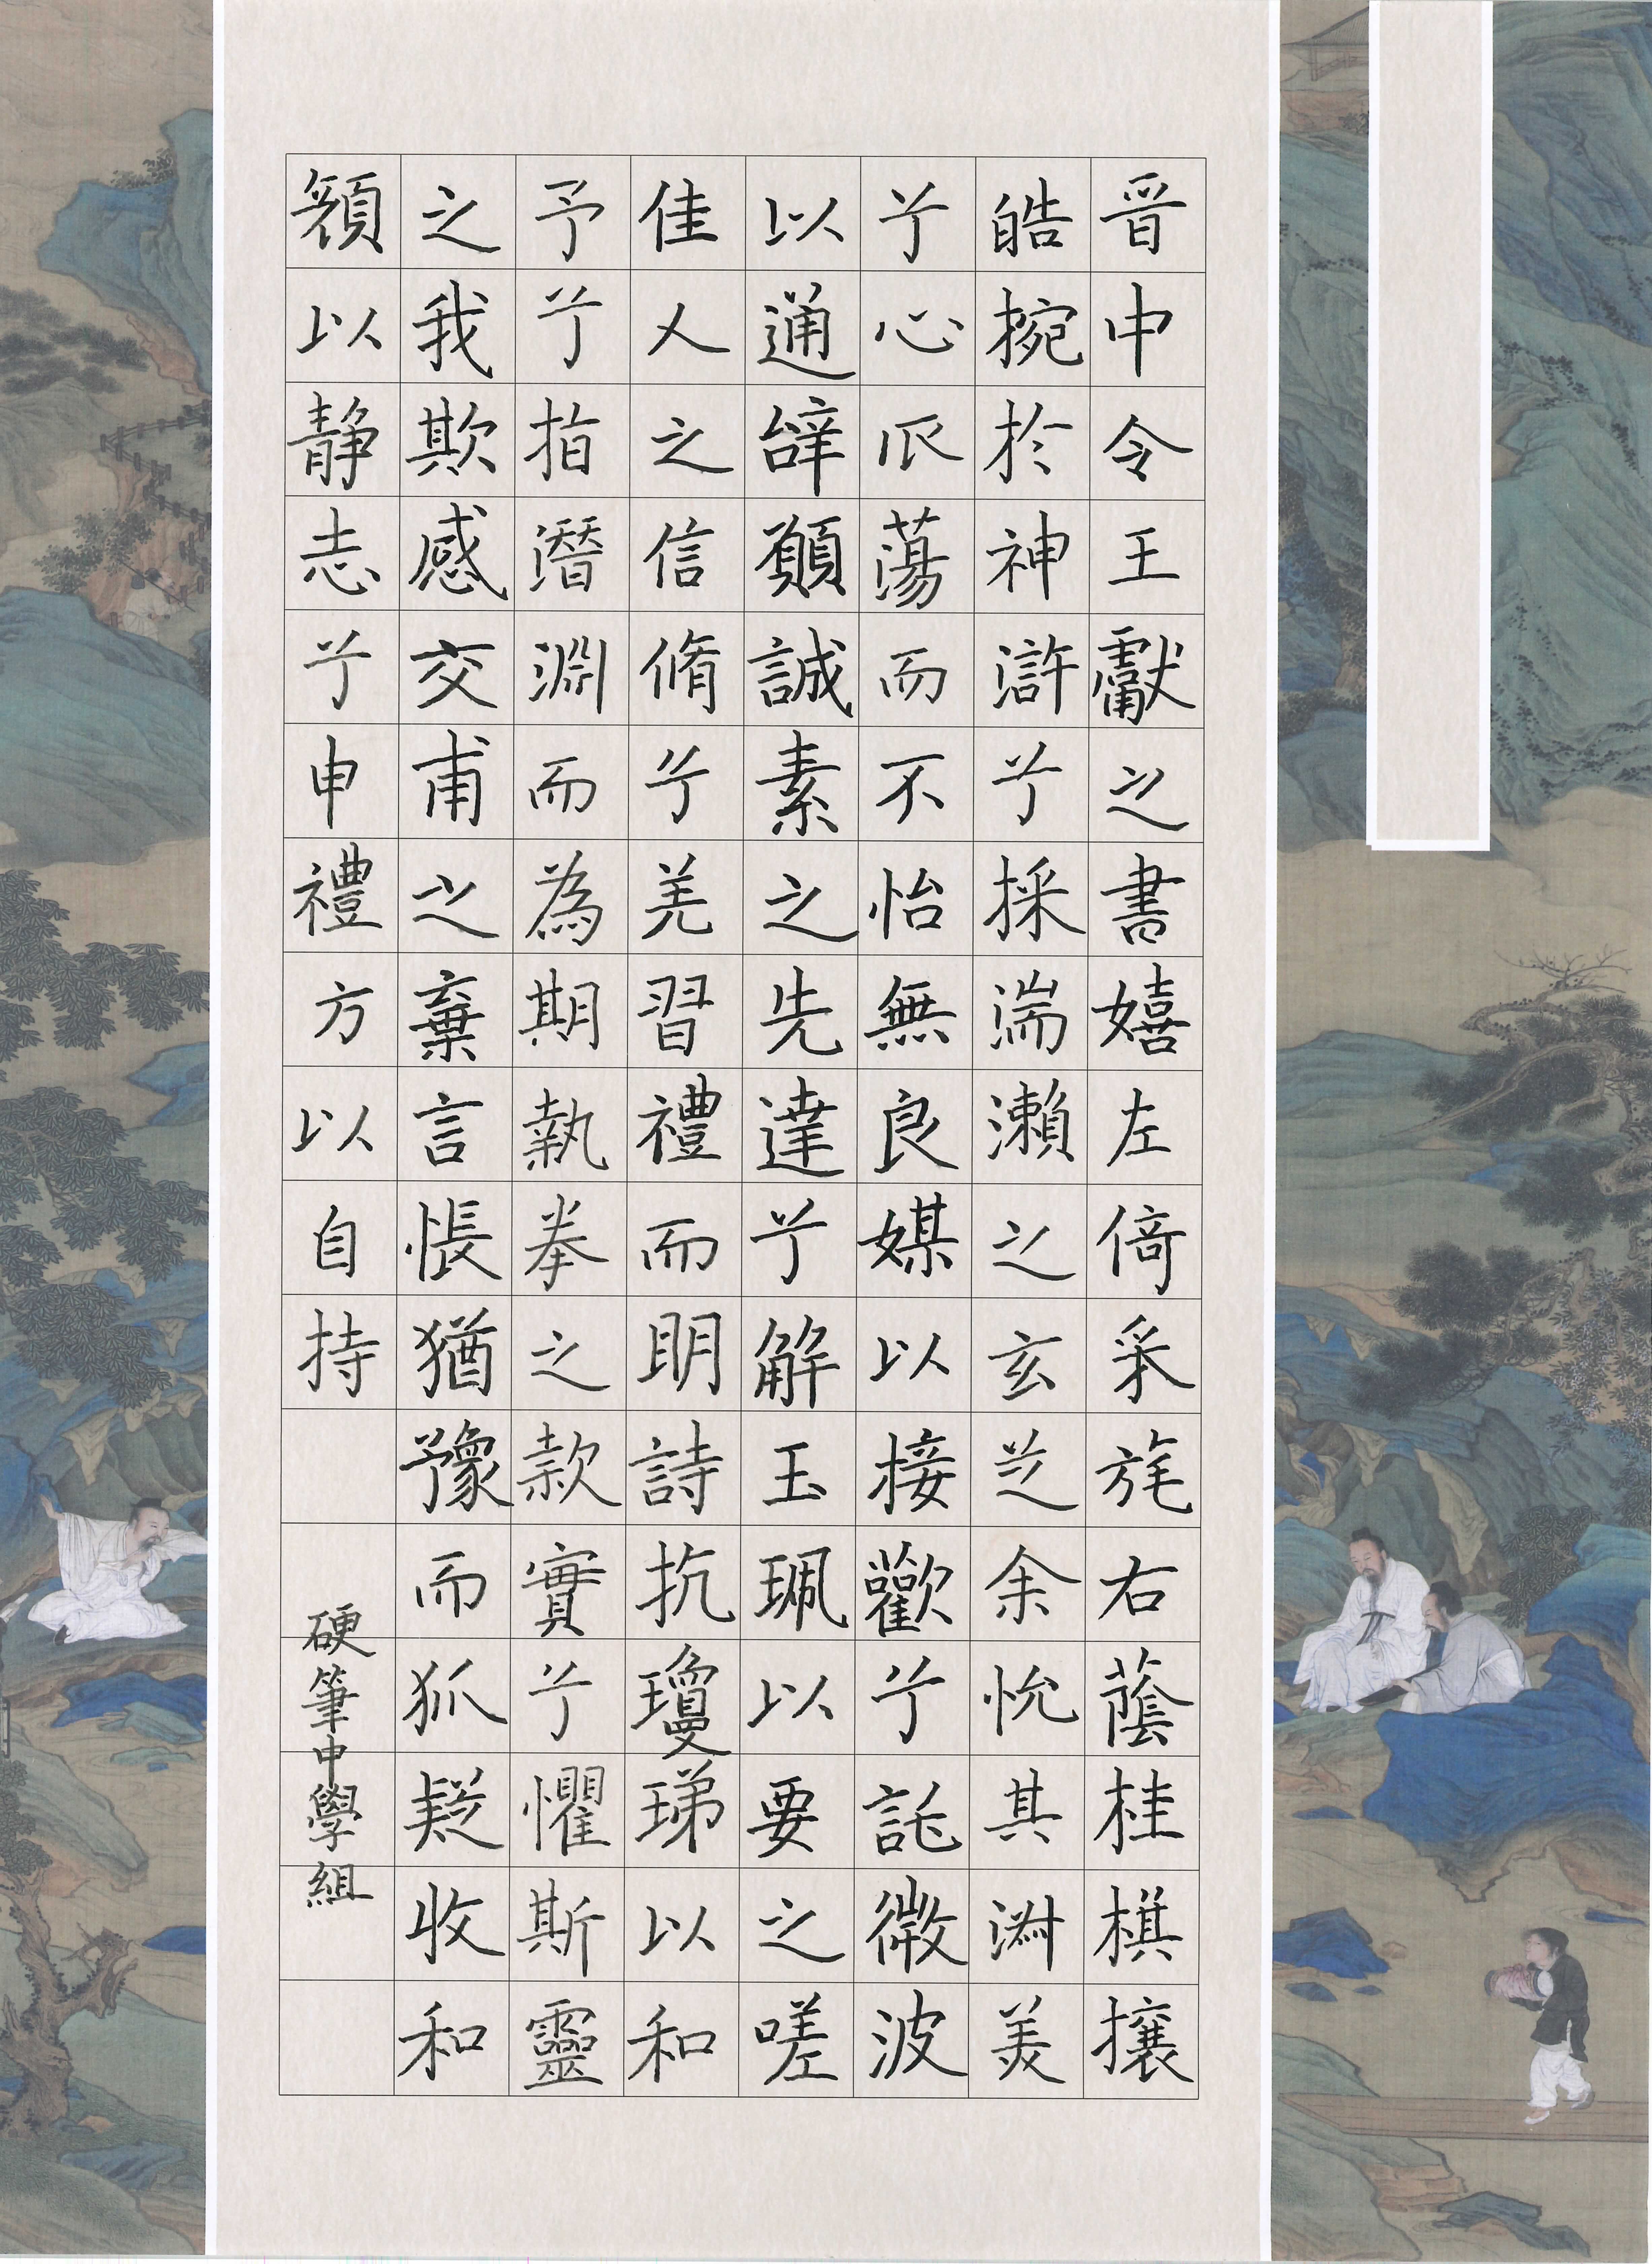 晋中令王獻之書嬉左倚采旄右蔭桂棋攘
皓捥於神滸兮採湍瀨之玄芝余悅其淑美
兮心㕟蕩而不怡無良媒以接歡兮託微波
以通辝願誠素之先達兮解玉珮以要之嗟
佳人之信脩兮羌習禮而明詩抗瓊珶以和
予兮指潛淵而為期執拳之款實兮懼斯靈
之我欺感交甫之棄言悵猶豫而狐疑收和
顏以靜志兮申禮方以自持
硬筆中學組